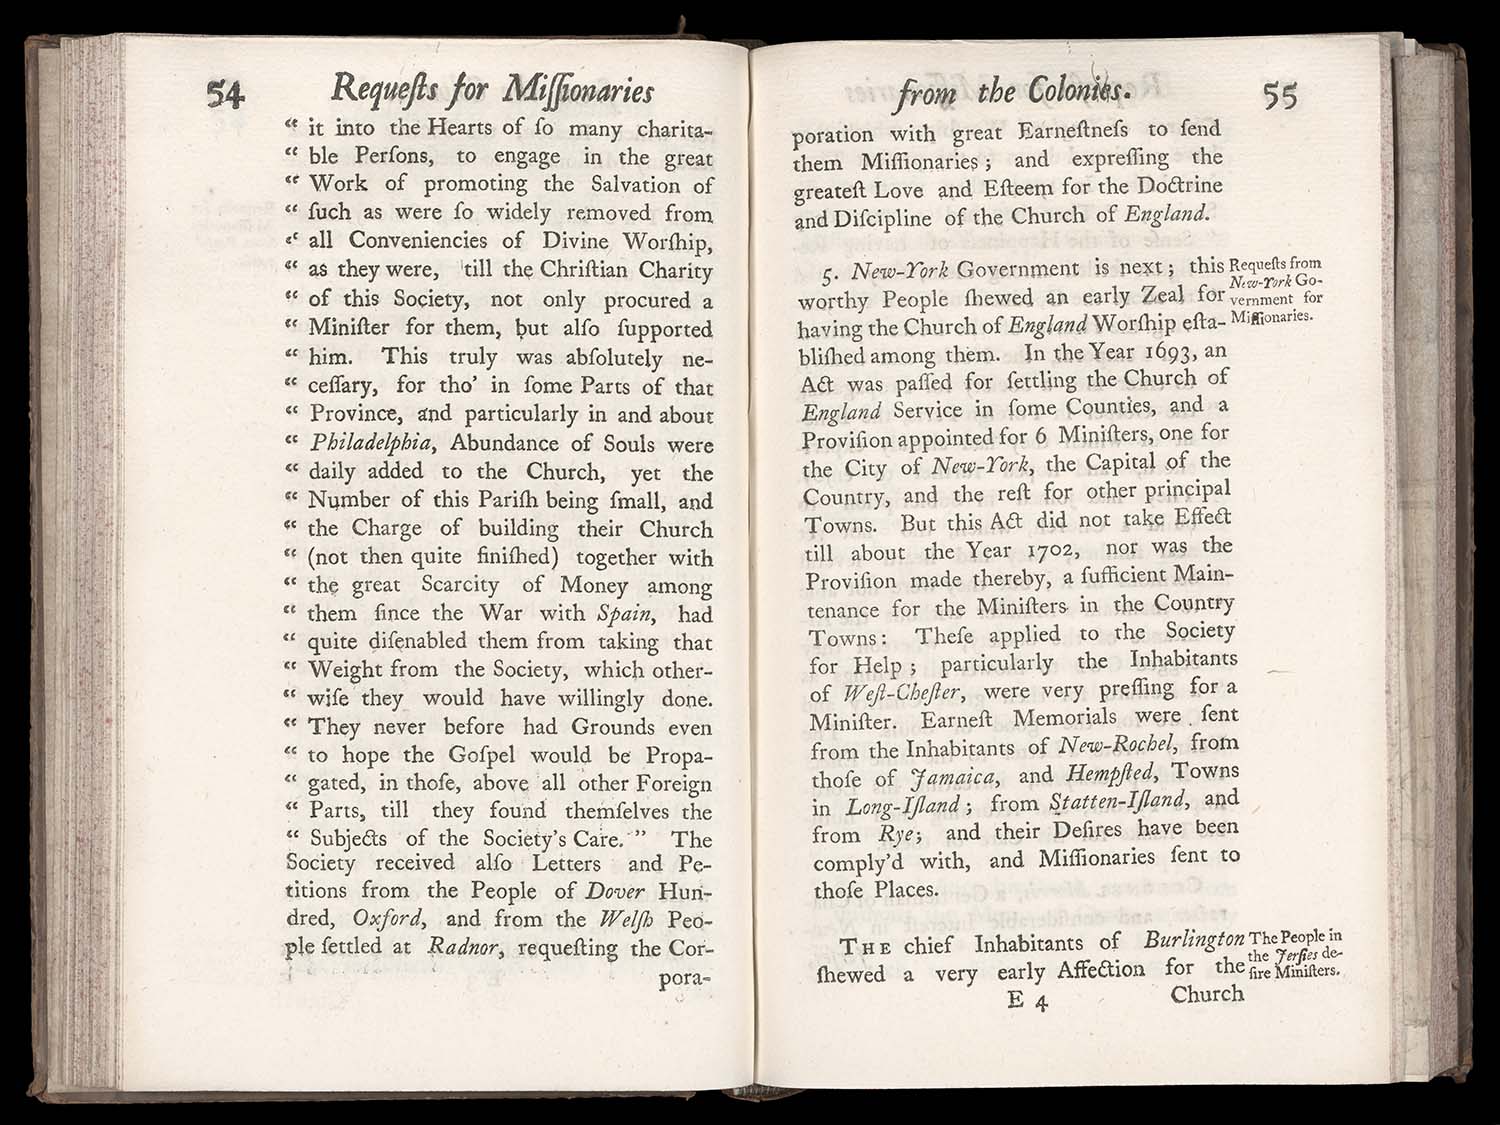 54 Requeſts for Miſſionaries
“ it into the Hearts of ſo many charita-
“ ble Perſons, to engage in the great
“ Work of promoting the Salvation of
“ ſuch as were ſo widely removed from
“ all Conveniencies of Divine Worſhip,
“ as they were, 'till the Chriſtian Charity
“ of this Society, not only procured a
“ Miniſter for them, but alſo ſupported
“ him. This truly was abſolutely ne-
“ ceſſary, for tho' in ſome Parts of that
“ Province, and particularly in and about
“ Philadelphia, Abundance of Souls were
“ daily added to the Church, yet the
“ Number of this Pariſh being ſmall, and
“ the Charge of building their Church
“ (not then quite finiſhed) together with
“ the great Scarcity of Money among
“ them ſince the War with Spain, had
“ quite diſenabled them from taking that
“ Weight from the Society, which other-
“ wiſe they would have willingly done.
“ They never before had Grounds even
“ to hope the Goſpel would be Propa-
“ gated, in thoſe, above all other Foreign
“ Parts, till they found themſelves the
“ Subjects of the Society's Care.” The
Society received alſo Letters and Pe-
titions from the People of Dover Hun-
dred, Oxford, and from the Welſh Peo-
ple ſettled at Radnor, requeſting the Cor-
pora-
from the Colonies. 55
poration with great Earneſtneſs to ſend
them Miſſionaries; and expreſſing the
greateſt Love and Eſteem for the Doctrine
and Diſcipline of the Church of England.
5. New-York Government is next; this
worthy People ſhewed an early Zeal for
having the Church of England Worſhip eſta-
bliſhed among them. In the Year 1693, an
Act was paſſed for ſettling the Church of
England Service in ſome Counties, and a
Proviſion appointed for 6 Miniſters, one for
the City of New-York, the Capital of the
Country, and the reſt for other principal
Towns. But this Act did not take Effect
till about the Year 1702, nor was the
Proviſion made thereby, a ſufficient Main-
tenance for the Miniſters in the Country
Towns: Theſe applied to the Society
for Help; particularly the Inhabitants
of Weſt-Cheſter, were very preſſing for a
Miniſter. Earneſt Memorials were ſent
from the Inhabitants of New-Rochel, from
thoſe of Jamaica, and Hempſted, Towns
in Long-Iſland; from Statten-Iſland, and
from Rye; and their Deſires have been
comply'd with, and Miſſionaries ſent to
thoſe Places.
Requeſts from
New-York Go-
vernment for
Miſſionaries.
THE chief Inhabitants of Burlington
ſhewed a very early Affection for the
The People in
the Jerſies de-
ſire Miniſters.
E 4 Church